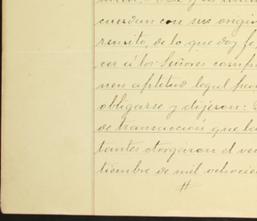 cuerdan con sus origin
remito, de lo que doy fe
cer á los Señores
con aptitud legal para
obligarse y dijeron:
de transacción que
tantes otorgaron el
tiembre de mil ochocie